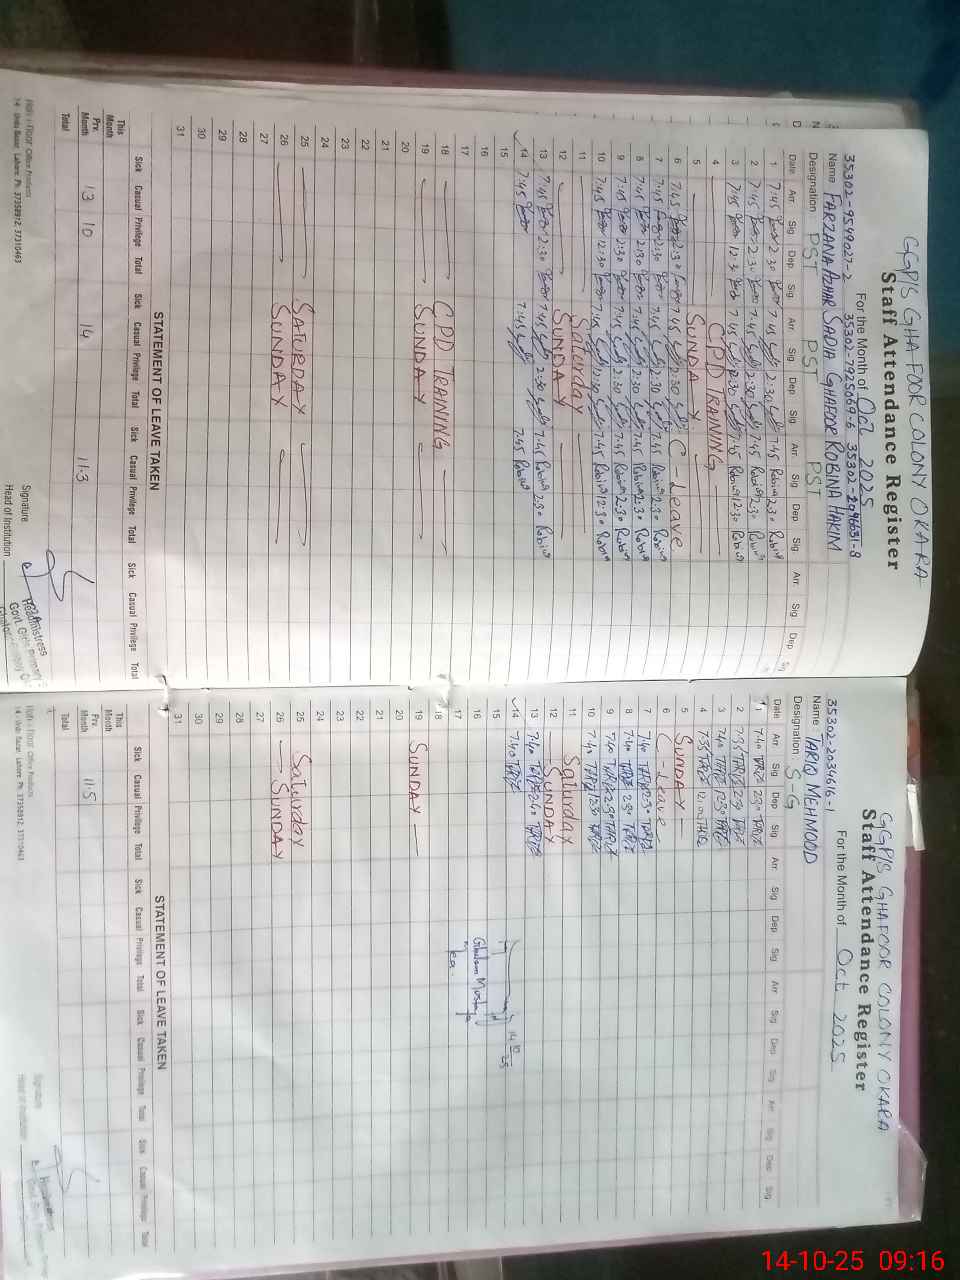 GGP/S GHAFOOR COLONY OKARA
Staff Attendance Register
For the Month of Oct 2025
35302-9549027-2 35302-7925069-6 35302-2096631-8
Name FARZANA AZHAR SADIA GHAFOOR ROBINA HAKIM
Designation PST PST PST
Date Arr. Sig Dep Sig. Arr. Sig Dep Sig. Arr. Sig Dep Sig. Arr. Sig Dep Sig
1 7:45 2:30 7:45 2:30 7:45 Robina 2:30 Robina
2 7:45 2:30 7:45 2:30 7:45 Robina 2:30 Robina
3 7:45 12:30 7:45 12:30 7:45 Robina 12:30 Robina
4 CPD TRAINING
5 SUNDAY
6 7:45 2:30 7:45 2:30 C-Leave
7 7:45 2:30 7:45 2:30 7:45 Robina 2:30 Robina
8 7:45 2:30 7:45 2:30 7:45 Robina 2:30 Robina
9 7:45 2:30 7:45 2:30 7:45 Robina 2:30 Robina
10 7:45 12:30 7:45 12:30 7:45 Robina 12:30 Robina
11 Saturday
12 SUNDAY
13 7:45 2:30 7:45 2:30 7:45 Robina 2:30 Robina
14 7:45 7:45 7:45 Robina
15
16
17
18 CPD TRAINING
19 SUNDAY
20
21
22
23
24
25 SATURDAY
26 SUNDAY
27
28
29
30
31
STATEMENT OF LEAVE TAKEN
Sick Casual Privilege Total Sick Casual Privilege Total Sick Casual Privilege Total Sick Casual Privilege Total
This Month
Prv. Month 13 10 14 11.3
Total
Signature
Head of Institution
Headmistress
Govt. Girls Primary
14 - Urdu Bazar, Lahore. Ph: 37358912, 37310463
GGP/S GHAFOOR COLONY OKARA
Staff Attendance Register
For the Month of Oct 2025
35302-2034616-1
Name TARIQ MEHMOOD
Designation S-G
Date Arr. Sig Dep Sig. Arr. Sig Dep Sig. Arr. Sig Dep Sig. Arr. Sig Dep Sig.
1 7:40 TARIQ 2:30 TARIQ
2 7:35 TARIQ 2:30 TARIQ
3 7:40 TARIQ 12:30 TARIQ
4 7:35 TARIQ 12:00 TARIQ
5 SUNDAY
6 C-Leave
7 7:40 TARIQ 2:30 TARIQ
8 7:40 TARIQ 2:30 TARIQ
9 7:40 TARIQ 2:30 TARIQ
10 7:40 TARIQ 12:30 TARIQ
11 Saturday
12 SUNDAY
13 7:40 TARIQ 2:40 TARIQ
14 7:40 TARIQ 14/10/25
15
16 Ghulam Mustafa
17
18
19 SUNDAY
20
21
22
23
24
25 Saturday
26 SUNDAY
27
28
29
30
31
STATEMENT OF LEAVE TAKEN
Sick Casual Privilege Total Sick Casual Privilege Total Sick Casual Privilege Total Sick Casual Privilege Total
This Month
Prv. Month 11.5
Total
Signature
Head of Institution
14 - Urdu Bazar, Lahore. Ph: 37358912, 37310463
14-10-25 09:16